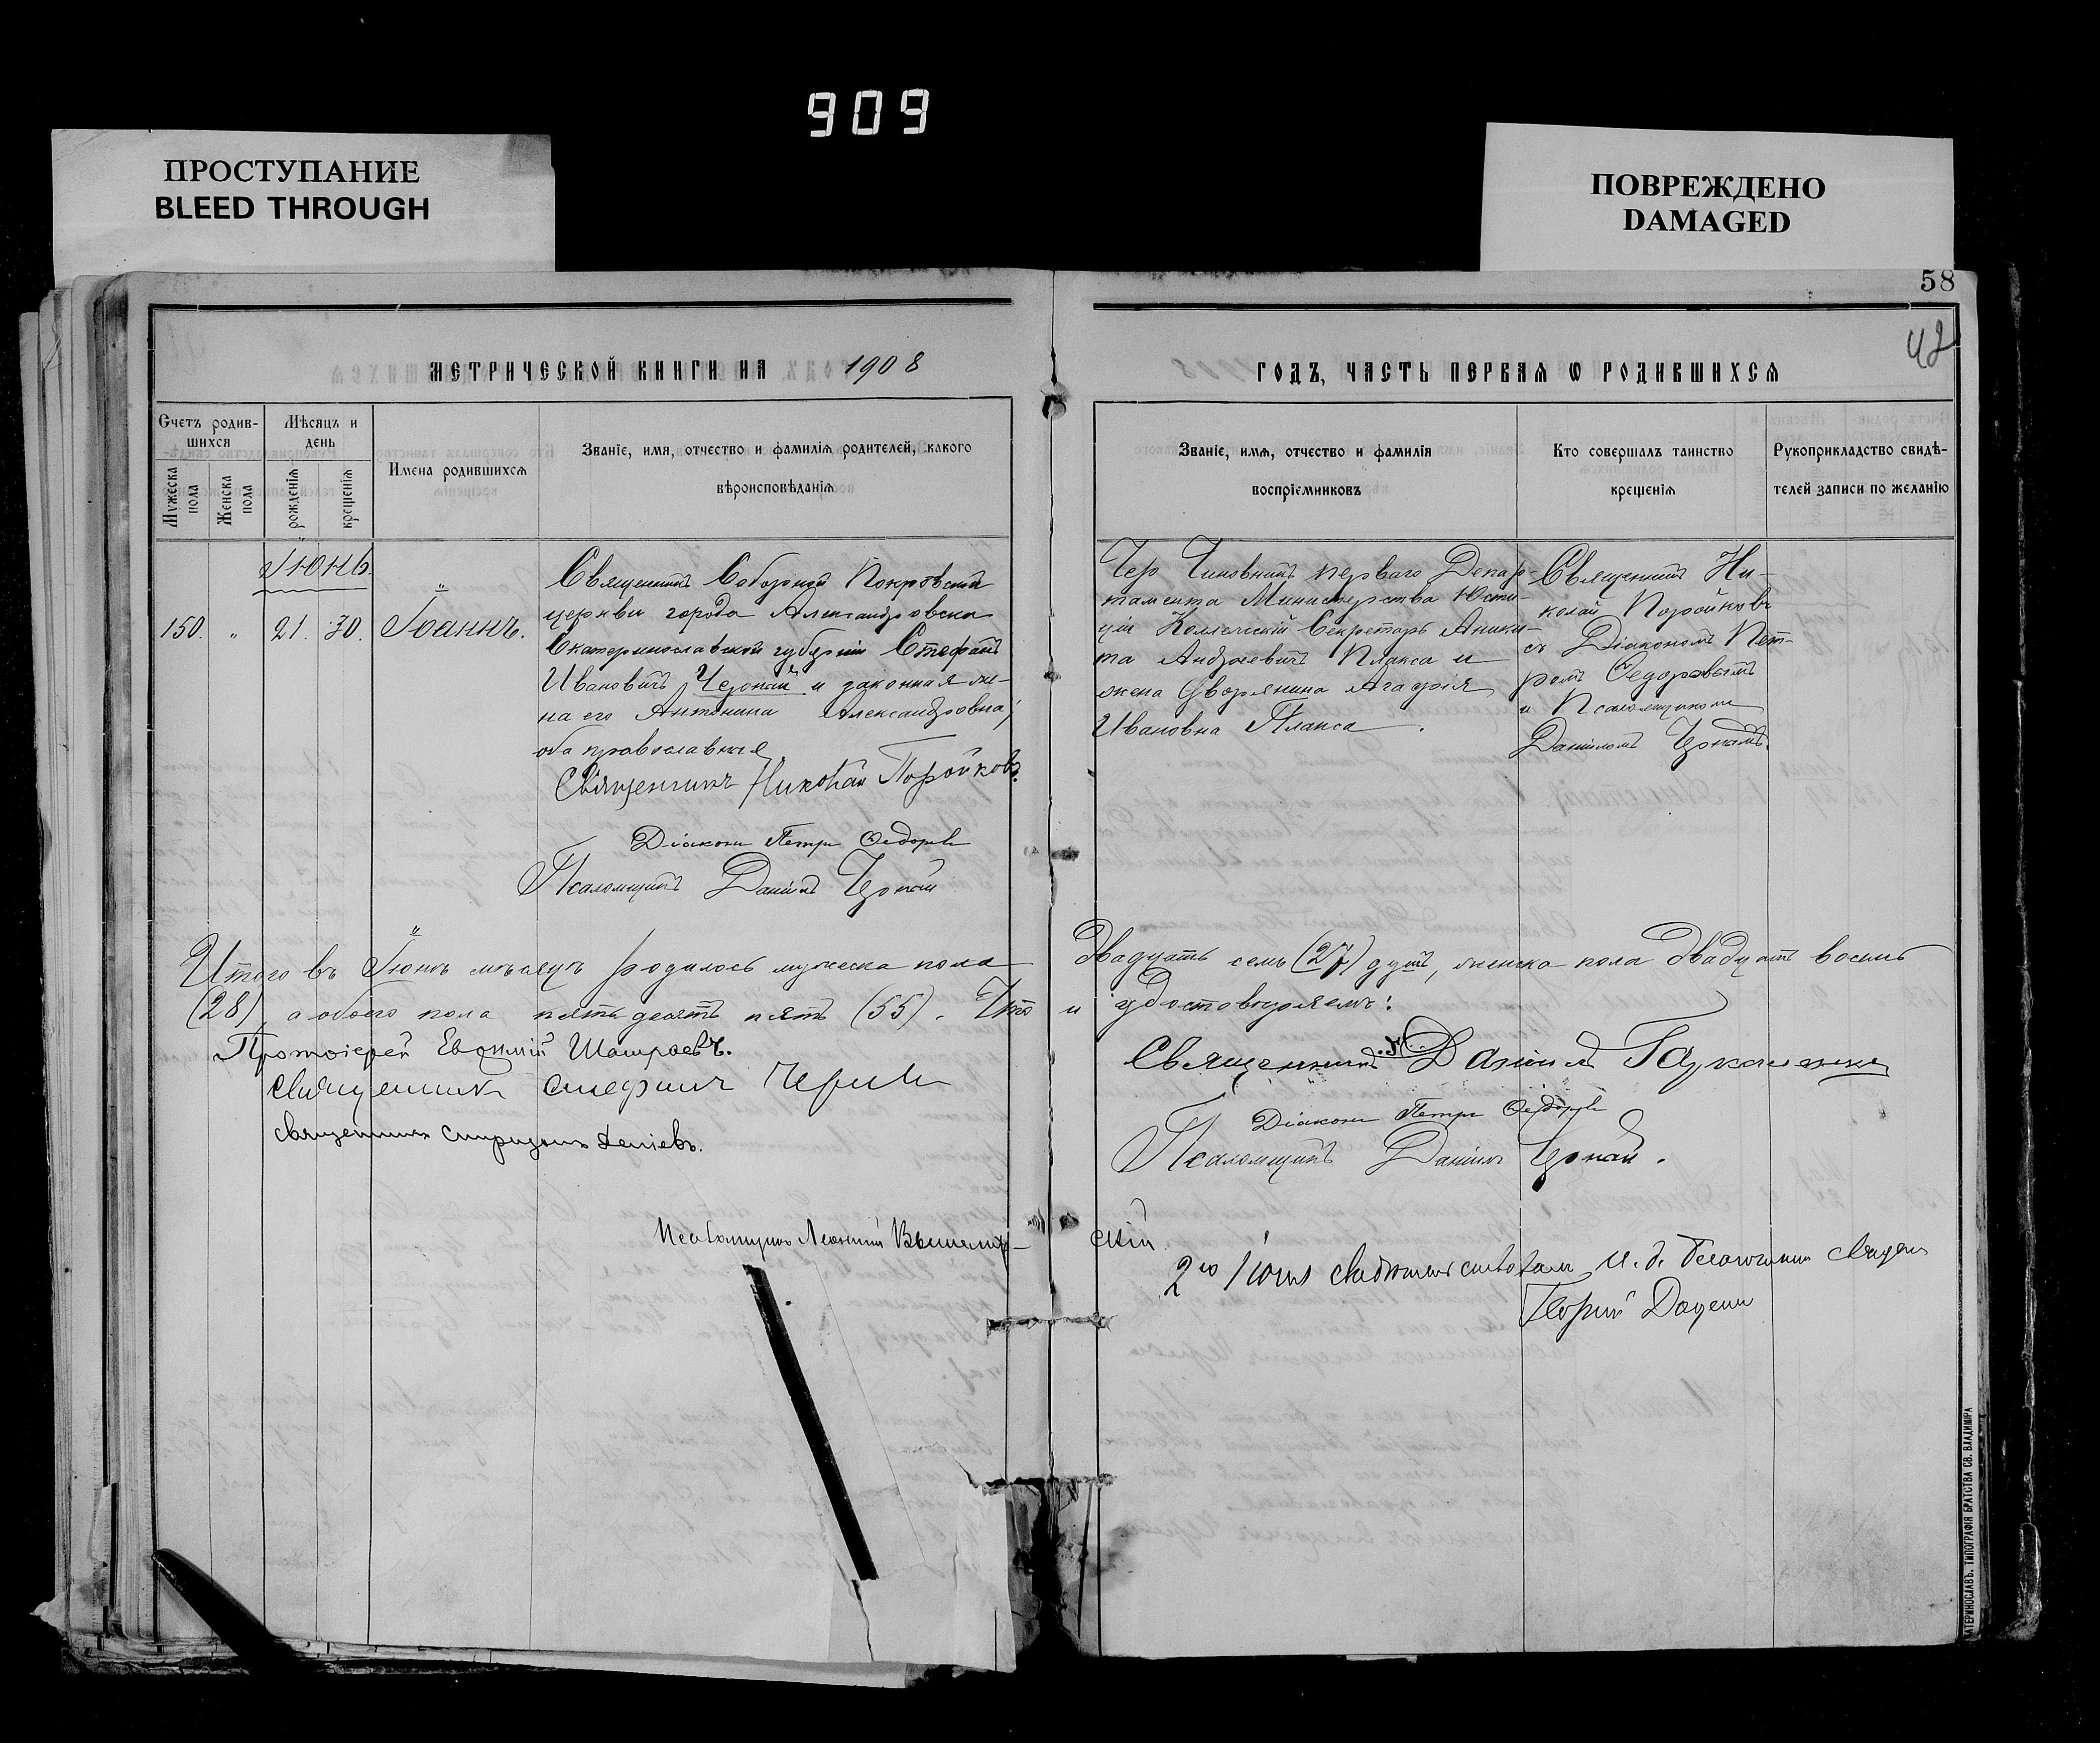 909
ПРОСТУПАНИЕ
BLEED THROUGH
ПОВРЕЖДЕНО
DAMAGED
58
42
МЕТРИЧЕСКОЙ КНИГИ НА 1908
ГОДЪ, ЧАСТЬ ПЕРВАЯ Ѡ РОДИВШИХСЯ
Счетъ родив-
шихся
Мужеска пола
Женска пола
Мѣсяцъ и
день
рожденія
крещенія
Имена родившихся
Званіе, имя, отчество и фамилія родителей, какого
вѣроисповѣданія
Званіе, имя, отчество и фамилія
воспріемниковъ
Кто совершалъ таинство
крещенія
Рукоприкладство свидѣ-
телей записи по желанію
Іюнь.
150. " 21. 30. Іоаннъ.
Священникъ Соборной Покровской
церкви города Александровска
Екатеринославской губерніи Стефанъ
Ивановичъ Черпай и законная же-
на его Антонина Александровна,
оба православные
Священникъ Николай Поройковъ.
Діаконъ Петръ Федоровъ
Псаломщикъ Даніилъ
Чиновникъ перваго Депар-
тамента Министерства Юсти-
ціи Коллежскій Секретарь Аники-
та Андреевичъ Плакса и
жена Дворянина Агафія
Ивановна Плакса.
Священникъ Ни-
колай Поройковъ
съ Діакономъ Пет-
ромъ Федоровымъ
и Псаломщикомъ
Даніиломъ
Итого въ Іюнѣ мѣсяцѣ родилось мужеска пола
двадцать семь (27) душъ, женска пола двадцать восемь
(28), а обоего пола пятьдесятъ пять (55). Что
и удостовѣряемъ:
Протоіерей Евфимій
Священникъ Стефанъ
Священникъ
Псаломщикъ Леонтій
скій
Священникъ Даніилъ
Діаконъ Петръ Федоровъ
Псаломщикъ Даніилъ
свидѣтельствовалъ И. д. Благочиннаго
ТИПОГРАФІЯ БРАТСТВА СВ. ВЛАДИМІРА